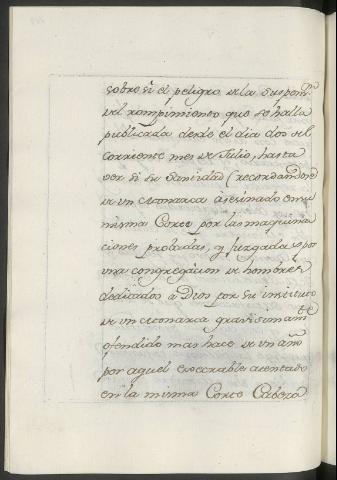 sobre si el peligro de la Suspens.on
del rompimiento que se halla
publicada desde el dia dos del
corriente mes de Julio, hasta
ver si su Santidad (recordandose
de un Monarca asesinado en su
misma Corte por las maquina
ciones probadas, y juzgadas por
una congregacion de hombres
dedicados a Dios por su instituto
de un Monarca gravisimam.te
ofendido mas hace de un año
por aquel execrable atentado
en la misma Corte Cabeza